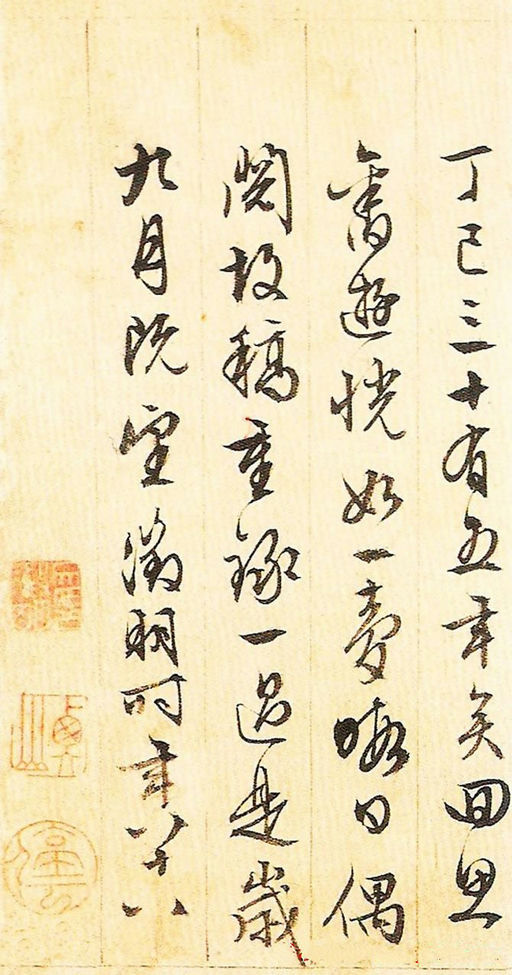 丁巳三十有五年矣回思
舊遊恍如一夢暇日偶
閱故稿重錄一過是歲
九月既望徵明時年八十八
停雲